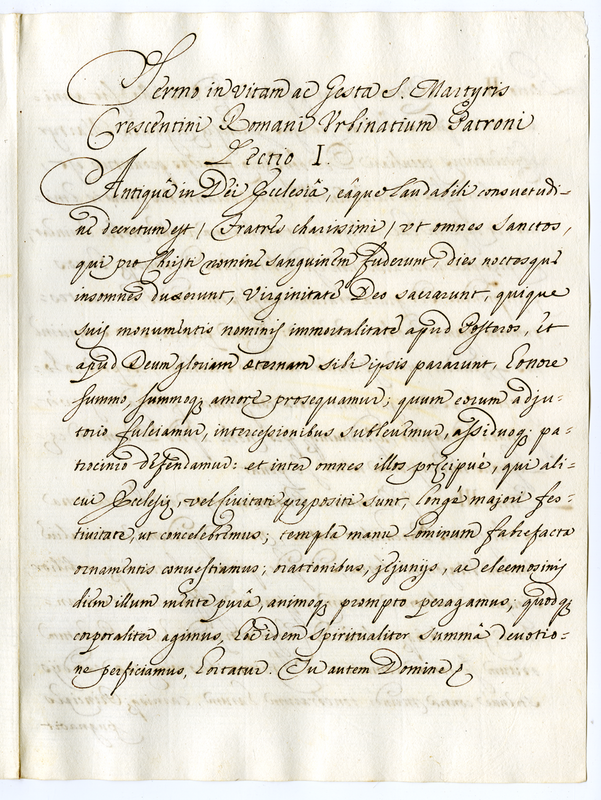 Sermo in vitam ac Gesta S. Martyris
Crescentini Romani Urbinatium Patroni
Lectio I.
Antiquâ in Dei Ecclesiâ, eâque laudabili consuetudi-
ne decretum est, / Fratres charissimi / ut omnes Sanctos,
qui pro Christi nomine sanguinem fuderunt, dies noctesque
insomnes duxerunt, Virginitatē Deo sacrarunt, quique
suis monumentis nominis immortalitatē apud Posteros, et
apud Deum gloriam æternam sibi ipsis pararunt, honore
summo, summoq; amore prosequamur; quum eorum adju-
torio fulciamur, intercessionibus sublevemur, assiduoq; pa-
trocinio defendamur: et inter omnes illos præcipuè, qui ali-
cui Ecclesiæ, vel Civitati præpositi sunt, longè majori fes-
tivitate, ut concelebremus; templa manu hominum fabrefacta
ornamentis convestiamus; orationibus, jejunijs, ac eleemosinis
diem illum mente purâ, animoq; prompto peragamus; quodq;
corporaliter agimus, hoc idem spiritualiter summâ devotio-
ne perficiamus, hortatur. Tu autem Domine